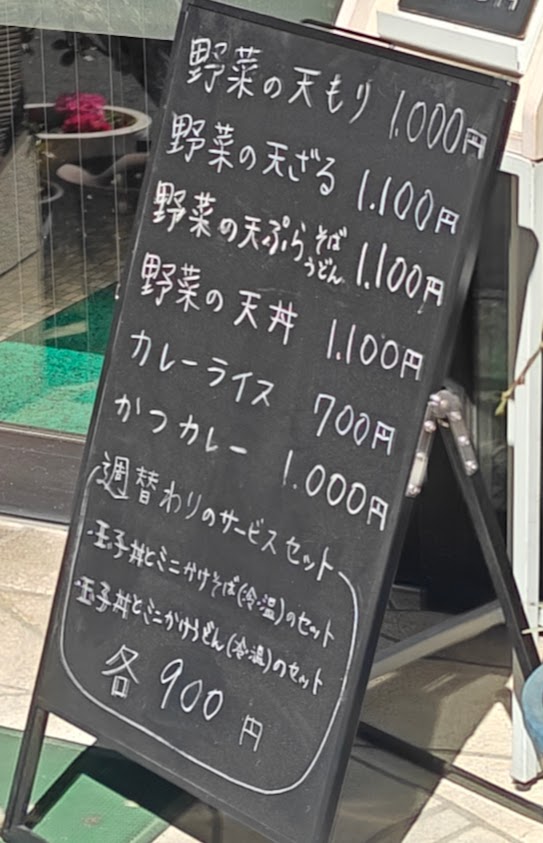 野菜の天もり 1.000円
野菜の天ざる 1.100円
野菜の天ぷらそばうどん 1.100円
野菜の天丼 1.100円
カレーライス 700円
かつカレー 1.000円
週替わりのサービスセット
・玉子丼とミニかけそば(冷温)のセット
・玉子丼とミニかけうどん(冷温)のセット
各 900円